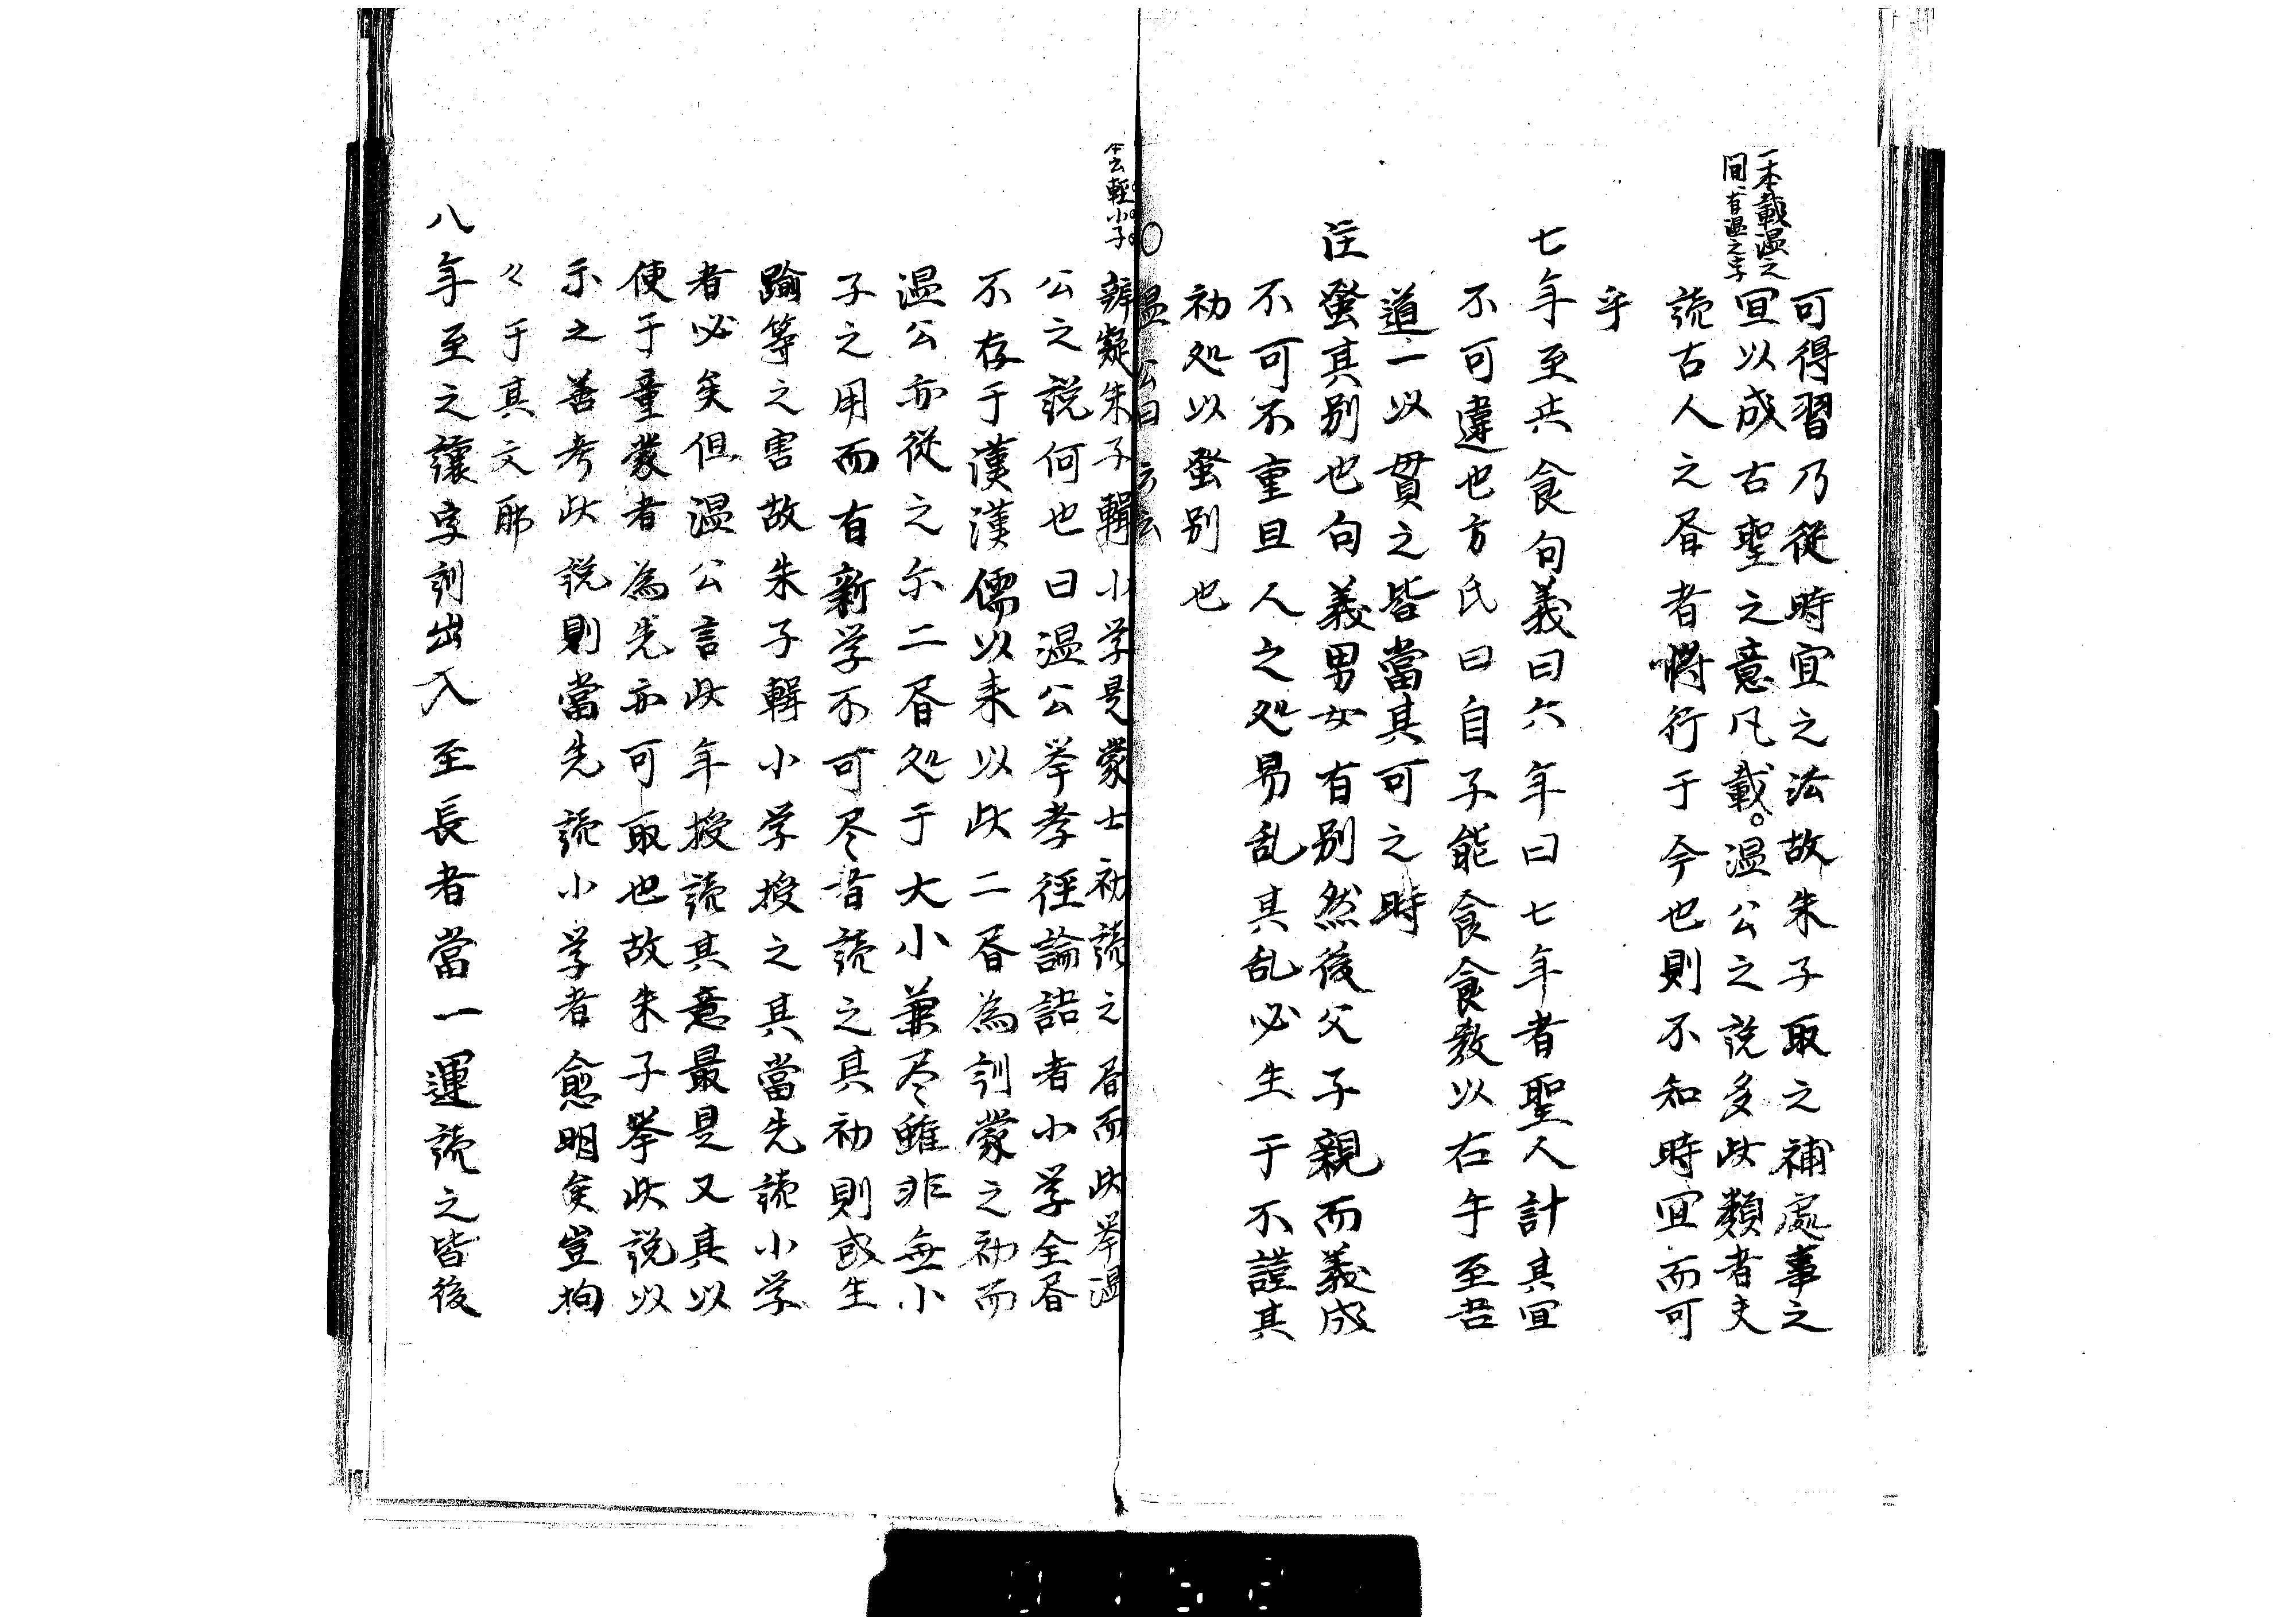 一本載温之
間、有温之字
可得習乃從時宜之法故朱子取之補處事之
宜以成古聖之意凡載。温公之説多此類者夫
読古人之昏者將行于今也則不知時宜而可
乎
七年至共食句義曰六年曰七年者聖人計其宜
不可違也方氏曰自子能食食教以右手至吾
道一以貫之皆當其可之時
注蚤其別也句義男女有別然後父子親而義成
不可不重且人之処易乱其乱必生于不謹其
初処以蚤別也
〇温公曰云云
本云輕小子
辨疑朱子輯小学是蒙士初読之昏而此挙温
公之説何也曰温公挙孝徑論語者小学全昏
不存于漢漢儒以来以此二昏為訓蒙之初而
温公亦從之尓二昏処于大小兼尽雖非無小
子之用而有新学不可尽者読之其初則或生
踰等之害故朱子輯小学授之其當先読小学
者必矣但温公言此年授読其意最是又其以
使于童蒙者為先亦可取也故朱子挙此説以
示之善考此説則當先読小学者愈明矣豈拘
々于其文耶
八年至之讓字訓出入至長者當一運読之皆後